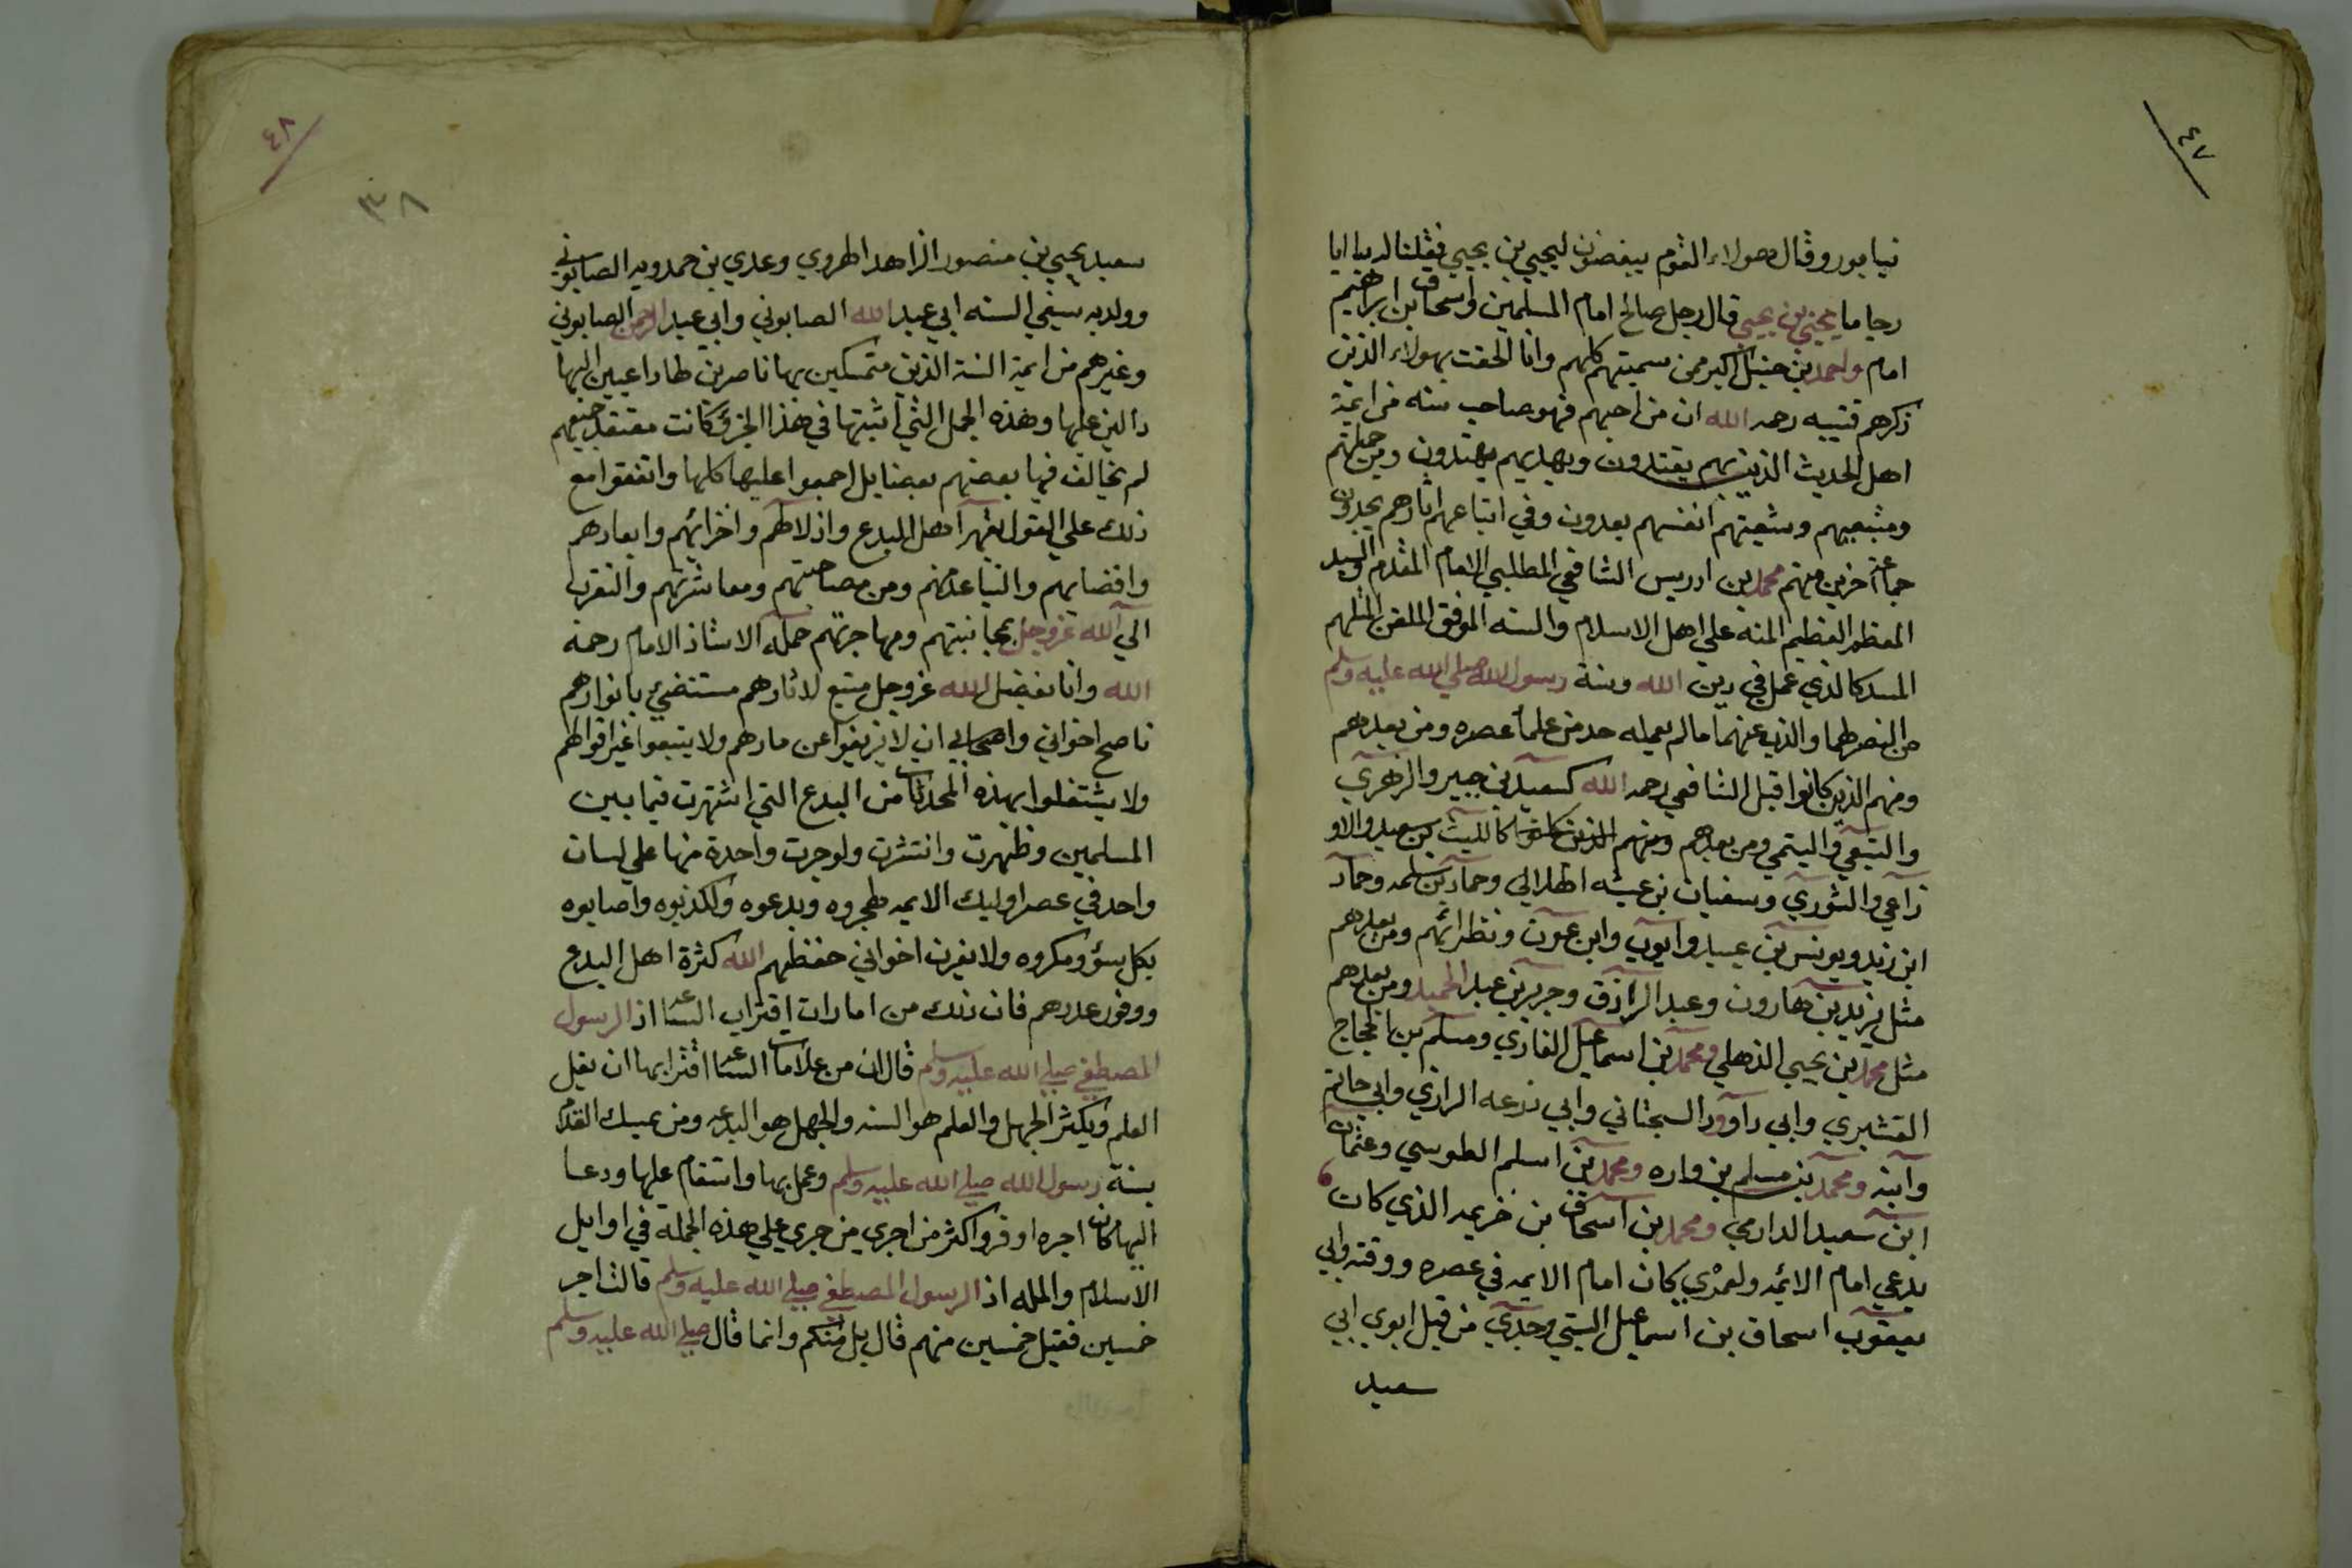 ٤٧
نيابور وقال هولاء القوم يبغضون ليحيي بن يحيي فقلنا له يا ابا
رجا ما يحيي بن يحيي قال رجل صالح امام المسلمين واسحاق بن ابراهيم
امام واحمد بن حنبل اكبر ممن سميتهم كلهم وانا الحقت بهولاء الذين
ذكرهم قتيبه رحمه الله ان من احبهم فهو صاحب سنه من ايمة
اهل الحديث الذين بهم يقتدون وبهديهم يهتدون ومن جملتهم
ومتبعيهم وشيعتهم انفسهم يعدون وفي اتباعهم اثارهم يجدون
جماعة آخرين منهم محمد بن ادريس الشافعي المطلبي الامام المقدم والسيد
المعظم العظيم المنه علي اهل الاسلام والسنه الموفق الملقن الملهم
المسدد الذي عمل في دين الله وسنة رسول الله صلي الله عليه وسلم
من النصر لهما والذب عنهما ما لم يعمله حد من علما عصره ومن بعدهم
ومنهم الذين كانوا قبل الشافعي رحمه الله كسعيد بن جبير والزهري
والشعبي والتيمي ومن بعدهم ومنهم الذين كانوا كالليث بن سعيد والاو
زاعي والثوري وسفيان بن عيينه الهلالي وحماد بن سلمه وحماد
ابن زيد ويونس بن عبيد وايوب وابن عون ونظرائهم ومن بعدهم
مثل يزيد بن هارون وعبد الرازق وجرير بن عبد الحميد ومن بعدهم
مثل محمد بن يحيي الذهلي ومحمد بن اسماعيل الغازي ومسلم بن الحجاج
القشيري وابي داوود السجتاني وابي زرعه الرازي وابي حاتم
وآبنه ومحمد بن مسلم بن واره ومحمد بن اسلم الطوسي وعثمان
ابن سعيد الدارمي ومحمد بن اسحاق بن خزيمه الذي كان
يدعي امام الائمه ولعمري كان امام الايمه في عصره ووقته وابي
يعقوب اسحاق بن اسماعيل البستي وجدي من قبل ابوي ابي
سعيد
٤٨
٣٨
سعيد يحيي بن منصور الزاهد الهروي وعدي بن حمدويه الصابوني
وولديه سيفي السنه ابي عبد الله الصابوني وابي عبد الرحمن الصابوني
وغيرهم من ايمة السنة الذين متمسكين بها ناصرين لها داعيين اليها
دالين عليها وهذه الجمل التي اثبتها في هذا الجزؤ كانت معتقد جميعهم
لم يخالف فيها بعضهم بعضا بل اجمعوا عليها كلها واتفقوا مع
ذلك علي القول بقهر اهل البدع واذلالهم واخزائهم وابعادهم
واقصايهم والتباعد منهم ومن مصاحبتهم ومعاشرتهم والتقرب
الي الله عزوجل بمجانبتهم ومهاجرتهم جمله الاستاذ الامام رحمة
الله وانا بفضل الله عزوجل متبع لاثارهم مستضيئ بانوارهم
ناصح اخواني واصحابي ان لا يزيغوا عن منارهم ولا يتبعوا غير اقوالهم
ولا يشتغلوا بهذه المحدثات من البدع التي اشتهرت فيما بين
المسلمين وظهرت وانتشرت ولو جرت واحدة منها علي لسان
واحد في عصر اوليك الايمه لهجروه وبدعوه ولكذبوه واصابوه
بكل سؤ ومكروه ولا يغرن اخواني حفظهم الله كثرة اهل البدع
ووفور عددهم فان ذلك من امارات اقتراب الساعة اذ الرسول
المصطفي صلي الله عليه وسلم قال ان من علامات الساعة اقترابها ان يقل
العلم ويكثر الجهل والعلم هو السنه والجهل هو البدعه ومن تمسك اليوم
بسنة رسول الله صلي الله عليه وسلم وعمل بها واستقام عليها ودعا
اليها كان اجره اوفر واكثر من اجري من جري علي هذه الجملة في اوايل
الاسلام والمله اذ الرسول المصطفي صلي الله عليه وسلم قال له اجر
خمسين فقيل خمسين منهم قال بل منكم وانما قال صلي الله عليه وسلم